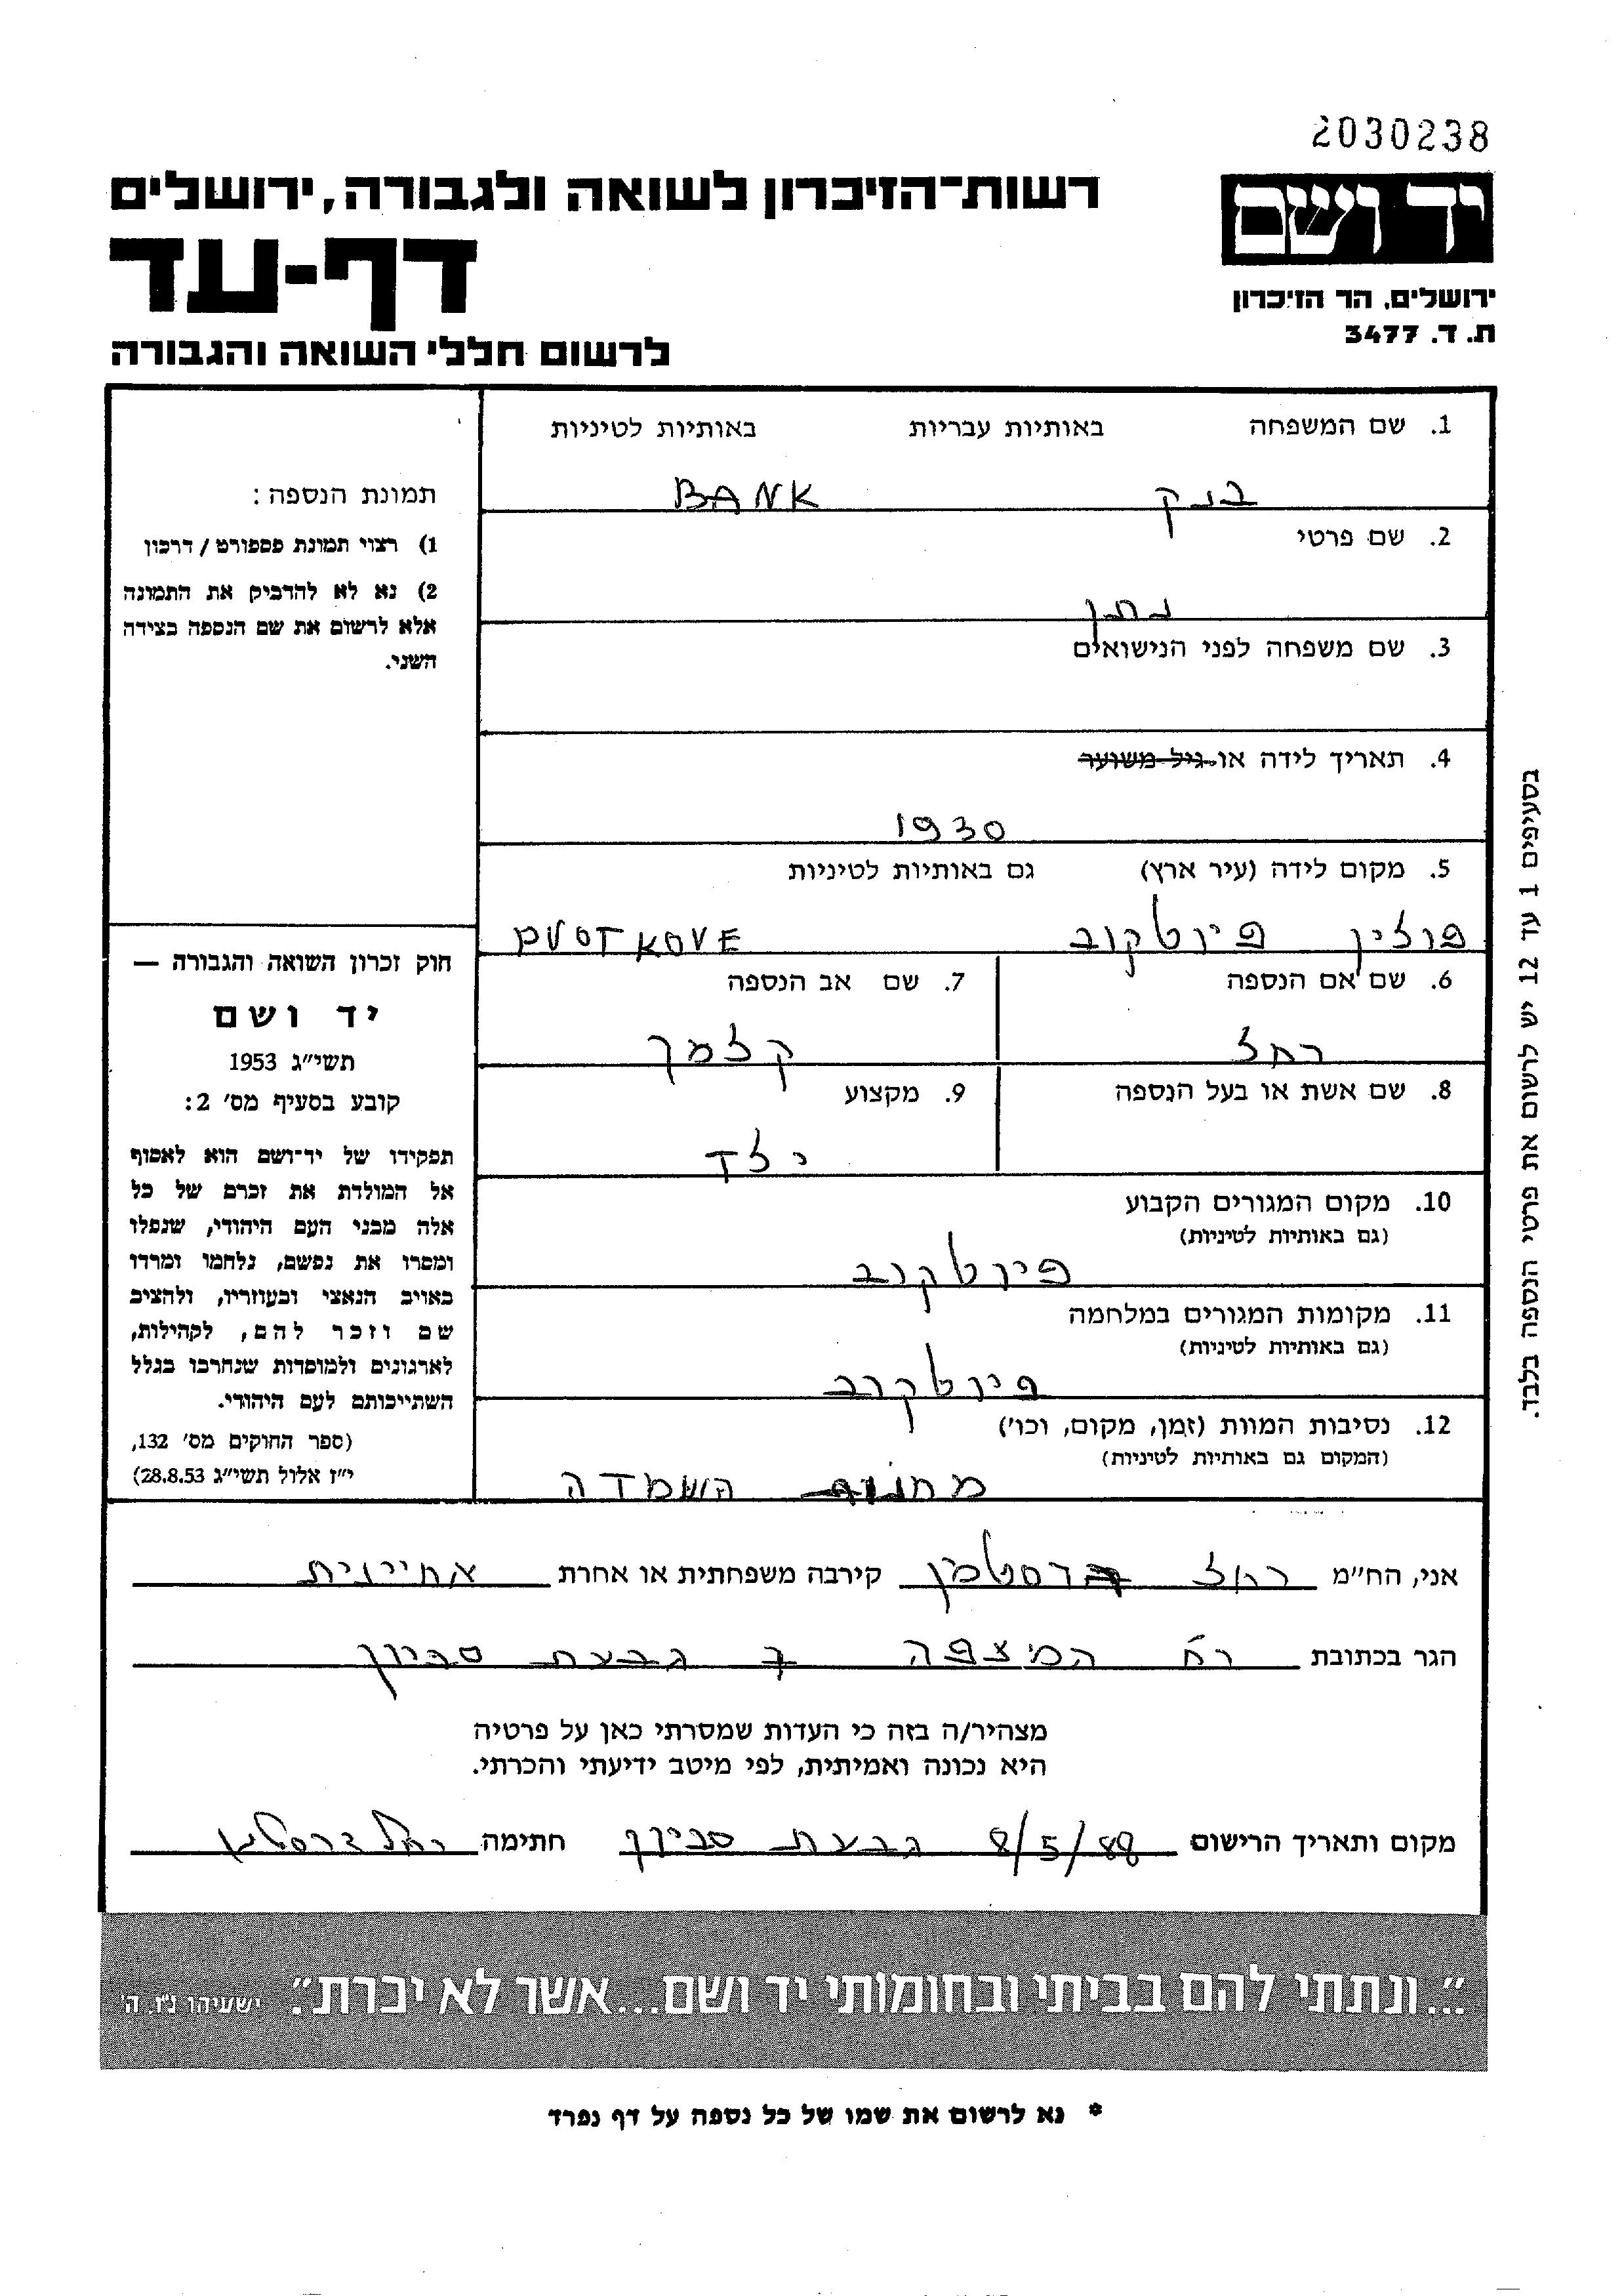 2030238
יד ושם
רשות־הזיכרון לשואה ולגבורה, ירושלים
דף-עד
ירושלים, הר הזיכרון
ת. ד. 3477
לרשום חללי השואה והגבורה
1. שם המשפחה באותיות עבריות באותיות לטיניות
בנק BANK
2. שם פרטי
נתן
3. שם משפחה לפני הנישואים
4. תאריך לידה או גיל משוער
1930
5. מקום לידה (עיר ארץ) גם באותיות לטיניות
פולין פיוטקוב PVOTKOVE
6. שם אם הנספה 7. שם אב הנספה
רחל קלמן
8. שם אשת או בעל הנספה 9. מקצוע
ילד
10. מקום המגורים הקבוע
(גם באותיות לטיניות)
פיוטקוב
11. מקומות המגורים במלחמה
(גם באותיות לטיניות)
פיוטקוב
12. נסיבות המוות (זמן, מקום, וכו')
(המקום גם באותיות לטיניות)
מחנות השמדה
תמונת הנספה:
1) רצוי תמונת פספורט / דרכון
2) נא לא להדביק את התמונה
אלא לרשום את שם הנספה בצידה
השני.
חוק זכרון השואה והגבורה —
יד ושם
תשי״ג 1953
קובע בסעיף מס׳ 2:
תפקידו של יד־ושם הוא לאסוף
אל המולדת את זכרם של כל
אלה מבני העם היהודי, שנפלו
ומסרו את נפשם, נלחמו ומרדו
באויב הנאצי ובעוזריו, ולהציב
שם וזכר להם, לקהילות,
לארגונים ולמוסדות שנחרבו בגלל
השתייכותם לעם היהודי.
(ספר החוקים מס׳ 132,
י״ז אלול תשי״ג 28.8.53)
בסעיפים 1 עד 12 יש לרשום את פרטי הנספה בלבד.
אני, הח״מ רחל קירבה משפחתית או אחרת אחיינית
הגר בכתובת רח המיצפה 7 גבעת סביון
מצהיר/ה בזה כי העדות שמסרתי כאן על פרטיה
היא נכונה ואמיתית, לפי מיטב ידיעתי והכרתי.
מקום ותאריך הרישום 8/5/88 גבעת סביון חתימה רחל
״...ונתתי להם בביתי ובחומותי יד ושם...אשר לא יכרת״. ישעיהו נ״ו, ה׳
* נא לרשום את שמו של כל נספה על דף נפרד